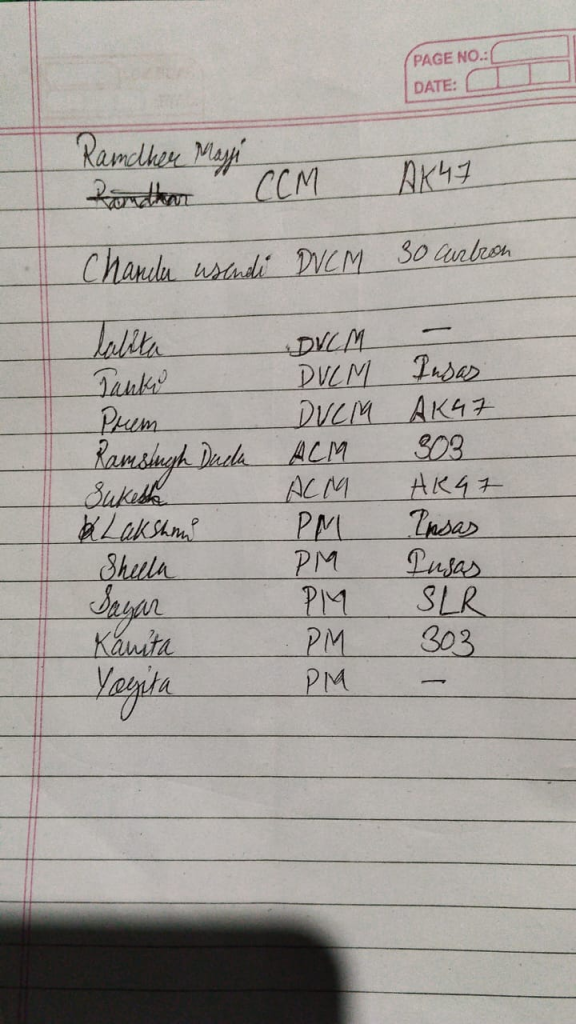 PAGE NO.:
DATE:
Ramdher Majji
Ramdhar CCM AK47
Chandu usendi DVCM 30 Carbron
Lalita DVCM —
Janki DVCM Insas
Prem DVCM AK47
Ramsingh Dada ACM 303
Sukesh ACM AK47
Lakshmi PM Insas
Sheela PM Insas
Sagar PM SLR
Kavita PM 303
Yogita PM —